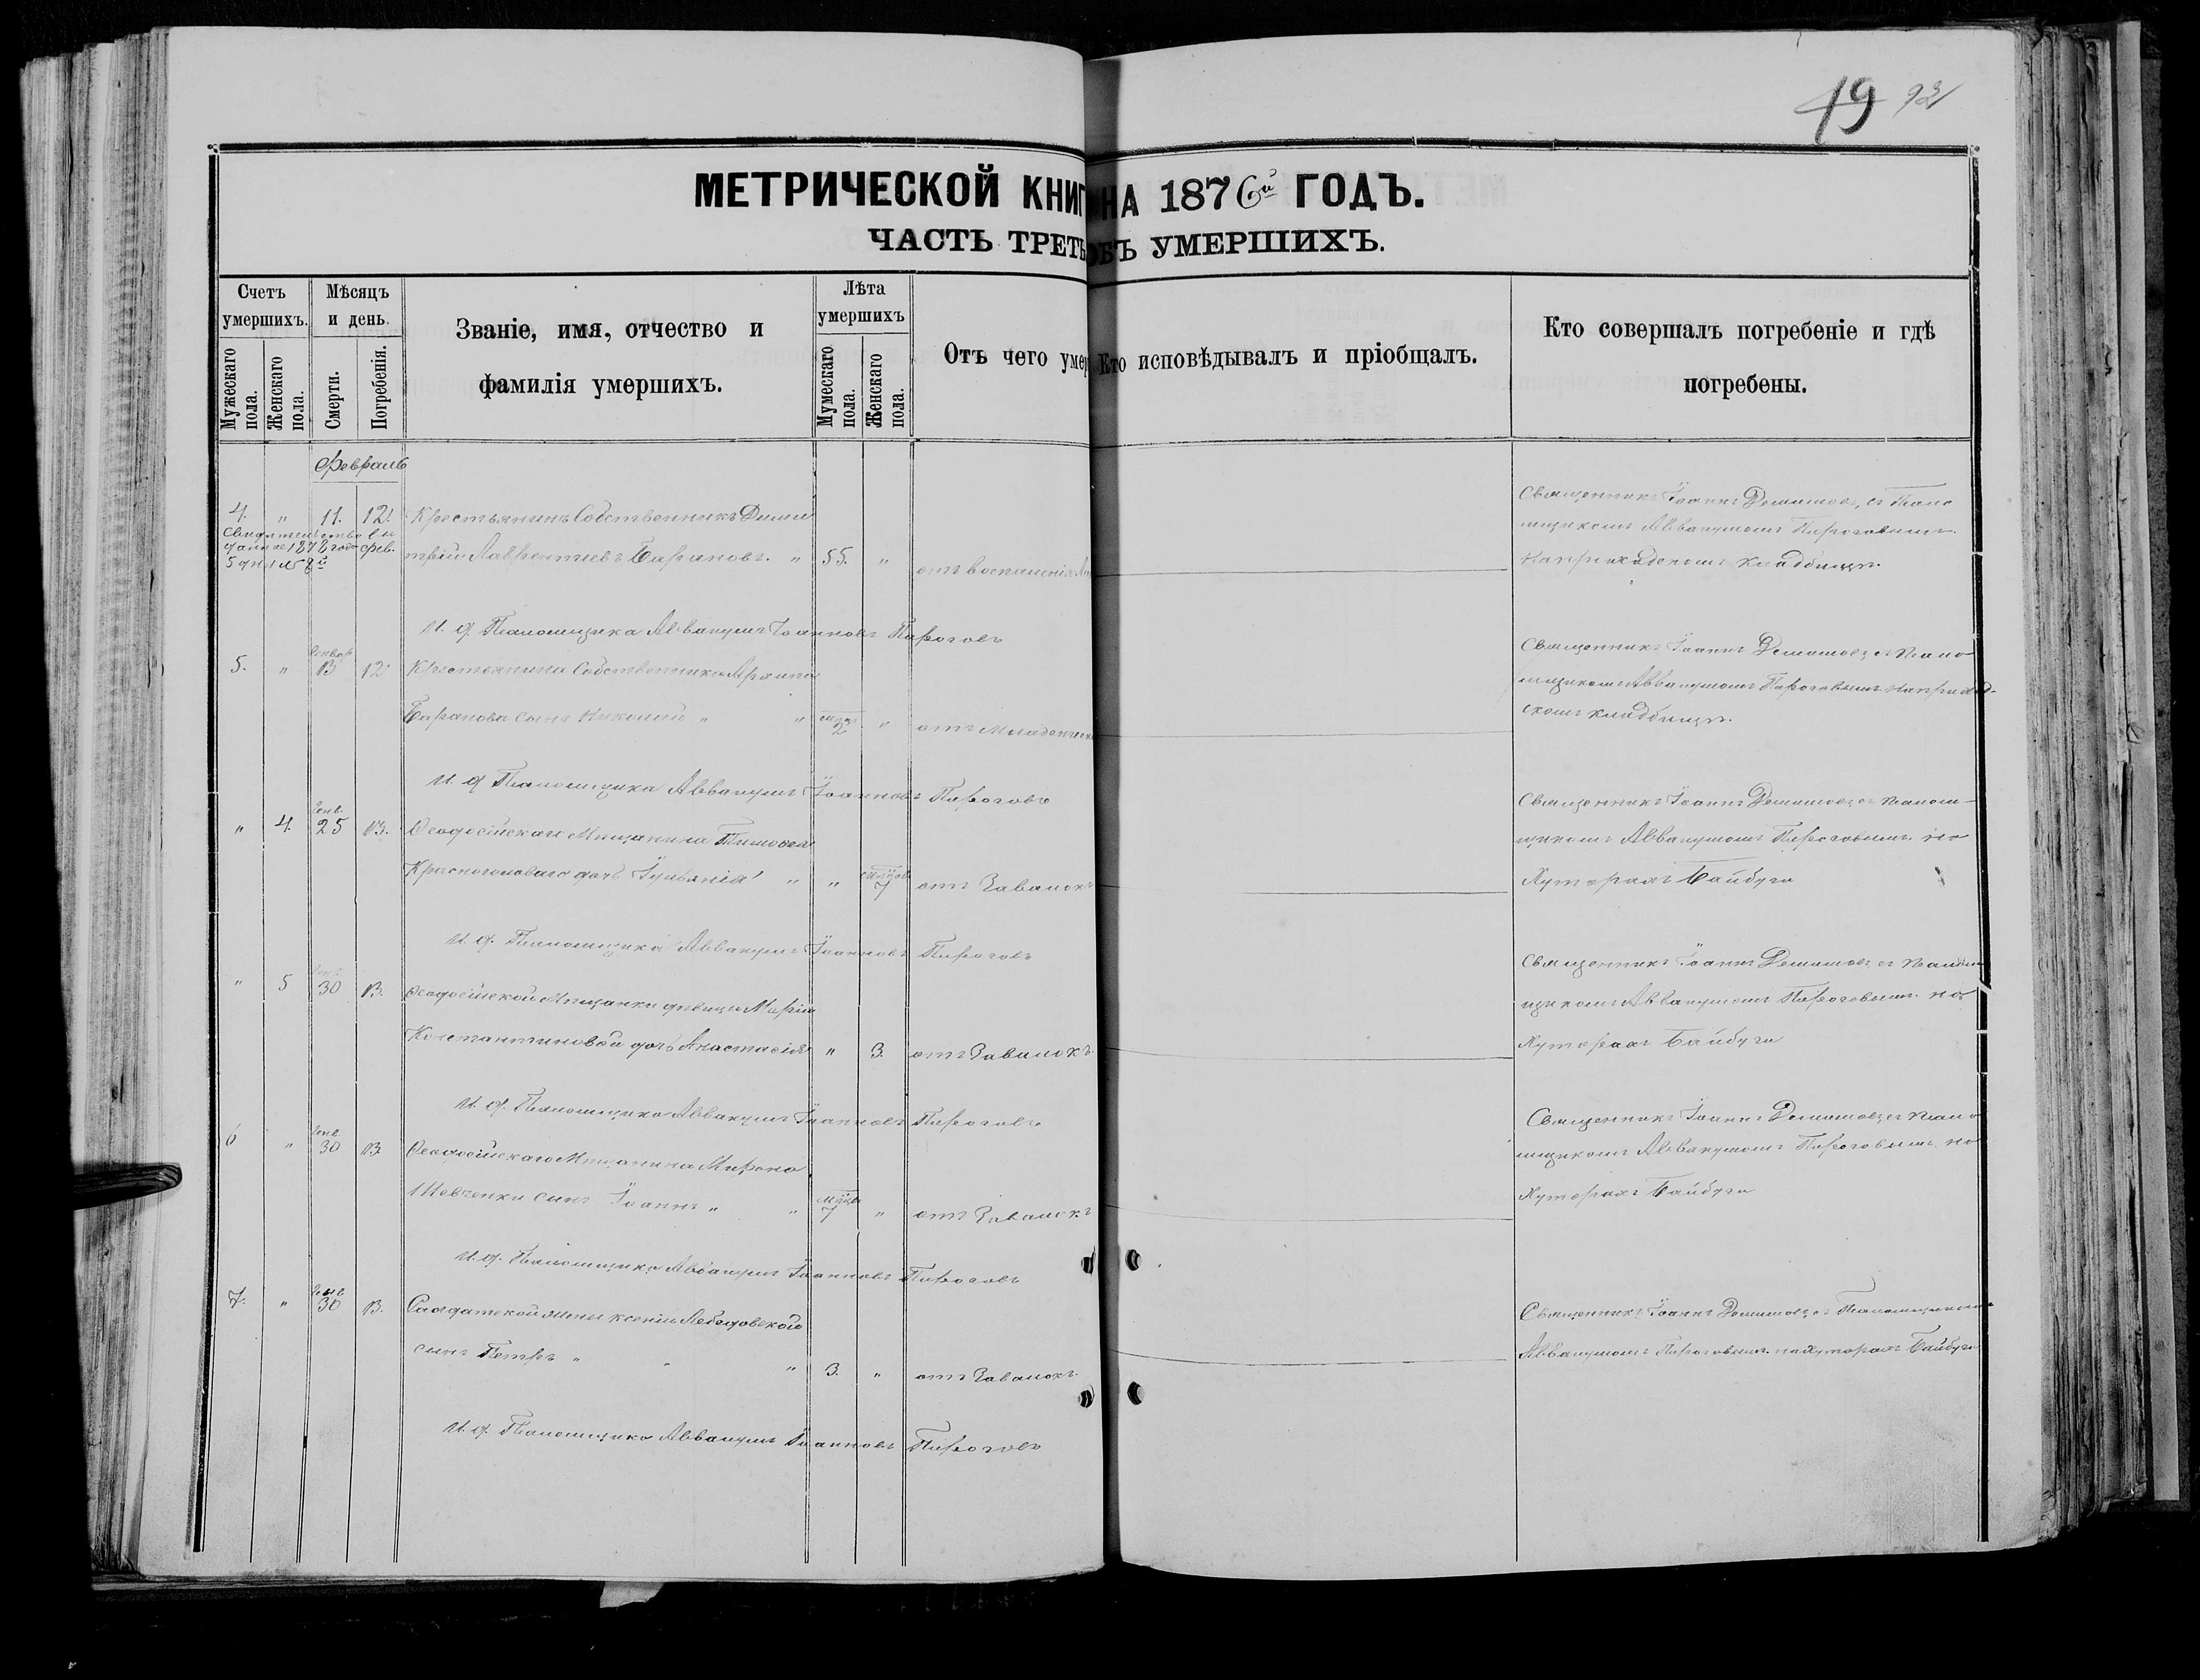 19 92
МЕТРИЧЕСКОЙ КНИГ НА 1876й ГОДЪ.
ЧАСТЬ ТРЕТЬ ОБЪ УМЕРШИХЪ.
Счетъ умершихъ.
Мужескаго пола.
Женскаго пола.
Мѣсяцъ и день.
Смерти.
Погребенія.
Званіе, имя, отчество и фамилія умершихъ.
Лѣта умершихъ
Мужескаго пола.
Женскаго пола.
Отъ чего умер
Кто исповѣдывалъ и пріобщалъ.
Кто совершалъ погребеніе и гдѣ погребены.
Февраль
4. " 11. 12. Крестьянинъ Собственникъ Дими
Свидетельство вы
данное 1878 года фев.
5 дня № 8й
трій Лаврентиевъ Барановъ. " 55. " отъ воспаленія
Священникъ Іоаннъ Демишовъ, съ Псало
мщикомъ Аввакумомъ Пироговымъ.
На приходскомъ кладбищѣ.
И. д. Псаломщика Аввакумъ Іоанновъ Пироговъ
5. " 13 12 Крестьянина Собственника
Баранова сынъ Николай " " 2 " отъ младенческ
Священникъ Іоаннъ Демишовъ, съ Псало
мщикомъ Аввакумомъ Пироговымъ на приход-
скомъ кладбищѣ.
И. д. Псаломщика Аввакумъ Іоанновъ Пироговъ
" 4. Генв. 25 13. Ѳеодосійскаго Мѣщанина Тимоѳея
Красноголоваго дочь Іуліанія " " 7 отъ Завалокъ
Священникъ Іоаннъ Демишовъ съ Псалом-
щикомъ Аввакумомъ Пироговымъ на
Хуторахъ Байбуги
И. д. Псаломщика Аввакумъ Іоанновъ Пироговъ
" 5 Генв. 30 13. Ѳеодосійской Мѣщанки дѣвицы Маріи
Константиновой дочь Анастасія " 3. отъ Завалокъ
Священникъ Іоаннъ Демишовъ, съ Псалом
щикомъ Аввакумомъ Пироговымъ на
Хуторахъ Байбуги
И. д. Псаломщика Аввакумъ Іоанновъ Пироговъ
6 " Генв. 30 13 Ѳеодосійскаго Мѣщанина Мирона
Шевченки сынъ Іоаннъ " " 7 " отъ Завалокъ
Священникъ Іоаннъ Демишовъ, съ Псало
мщикомъ Аввакумомъ Пироговымъ на
Хуторахъ Байбуги
И. д. Псаломщика Аввакумъ Іоанновъ Пироговъ
7. " Генв. 30 13. Солдатской жены Ксеніи Лебедовской
сынъ Петръ " " " 3. " отъ Завалокъ.
Священникъ Іоаннъ Демишовъ, съ Псаломщикомъ
Аввакумомъ Пироговымъ на хуторахъ Байбуги
И. д. Псаломщика Аввакумъ Іоанновъ Пироговъ